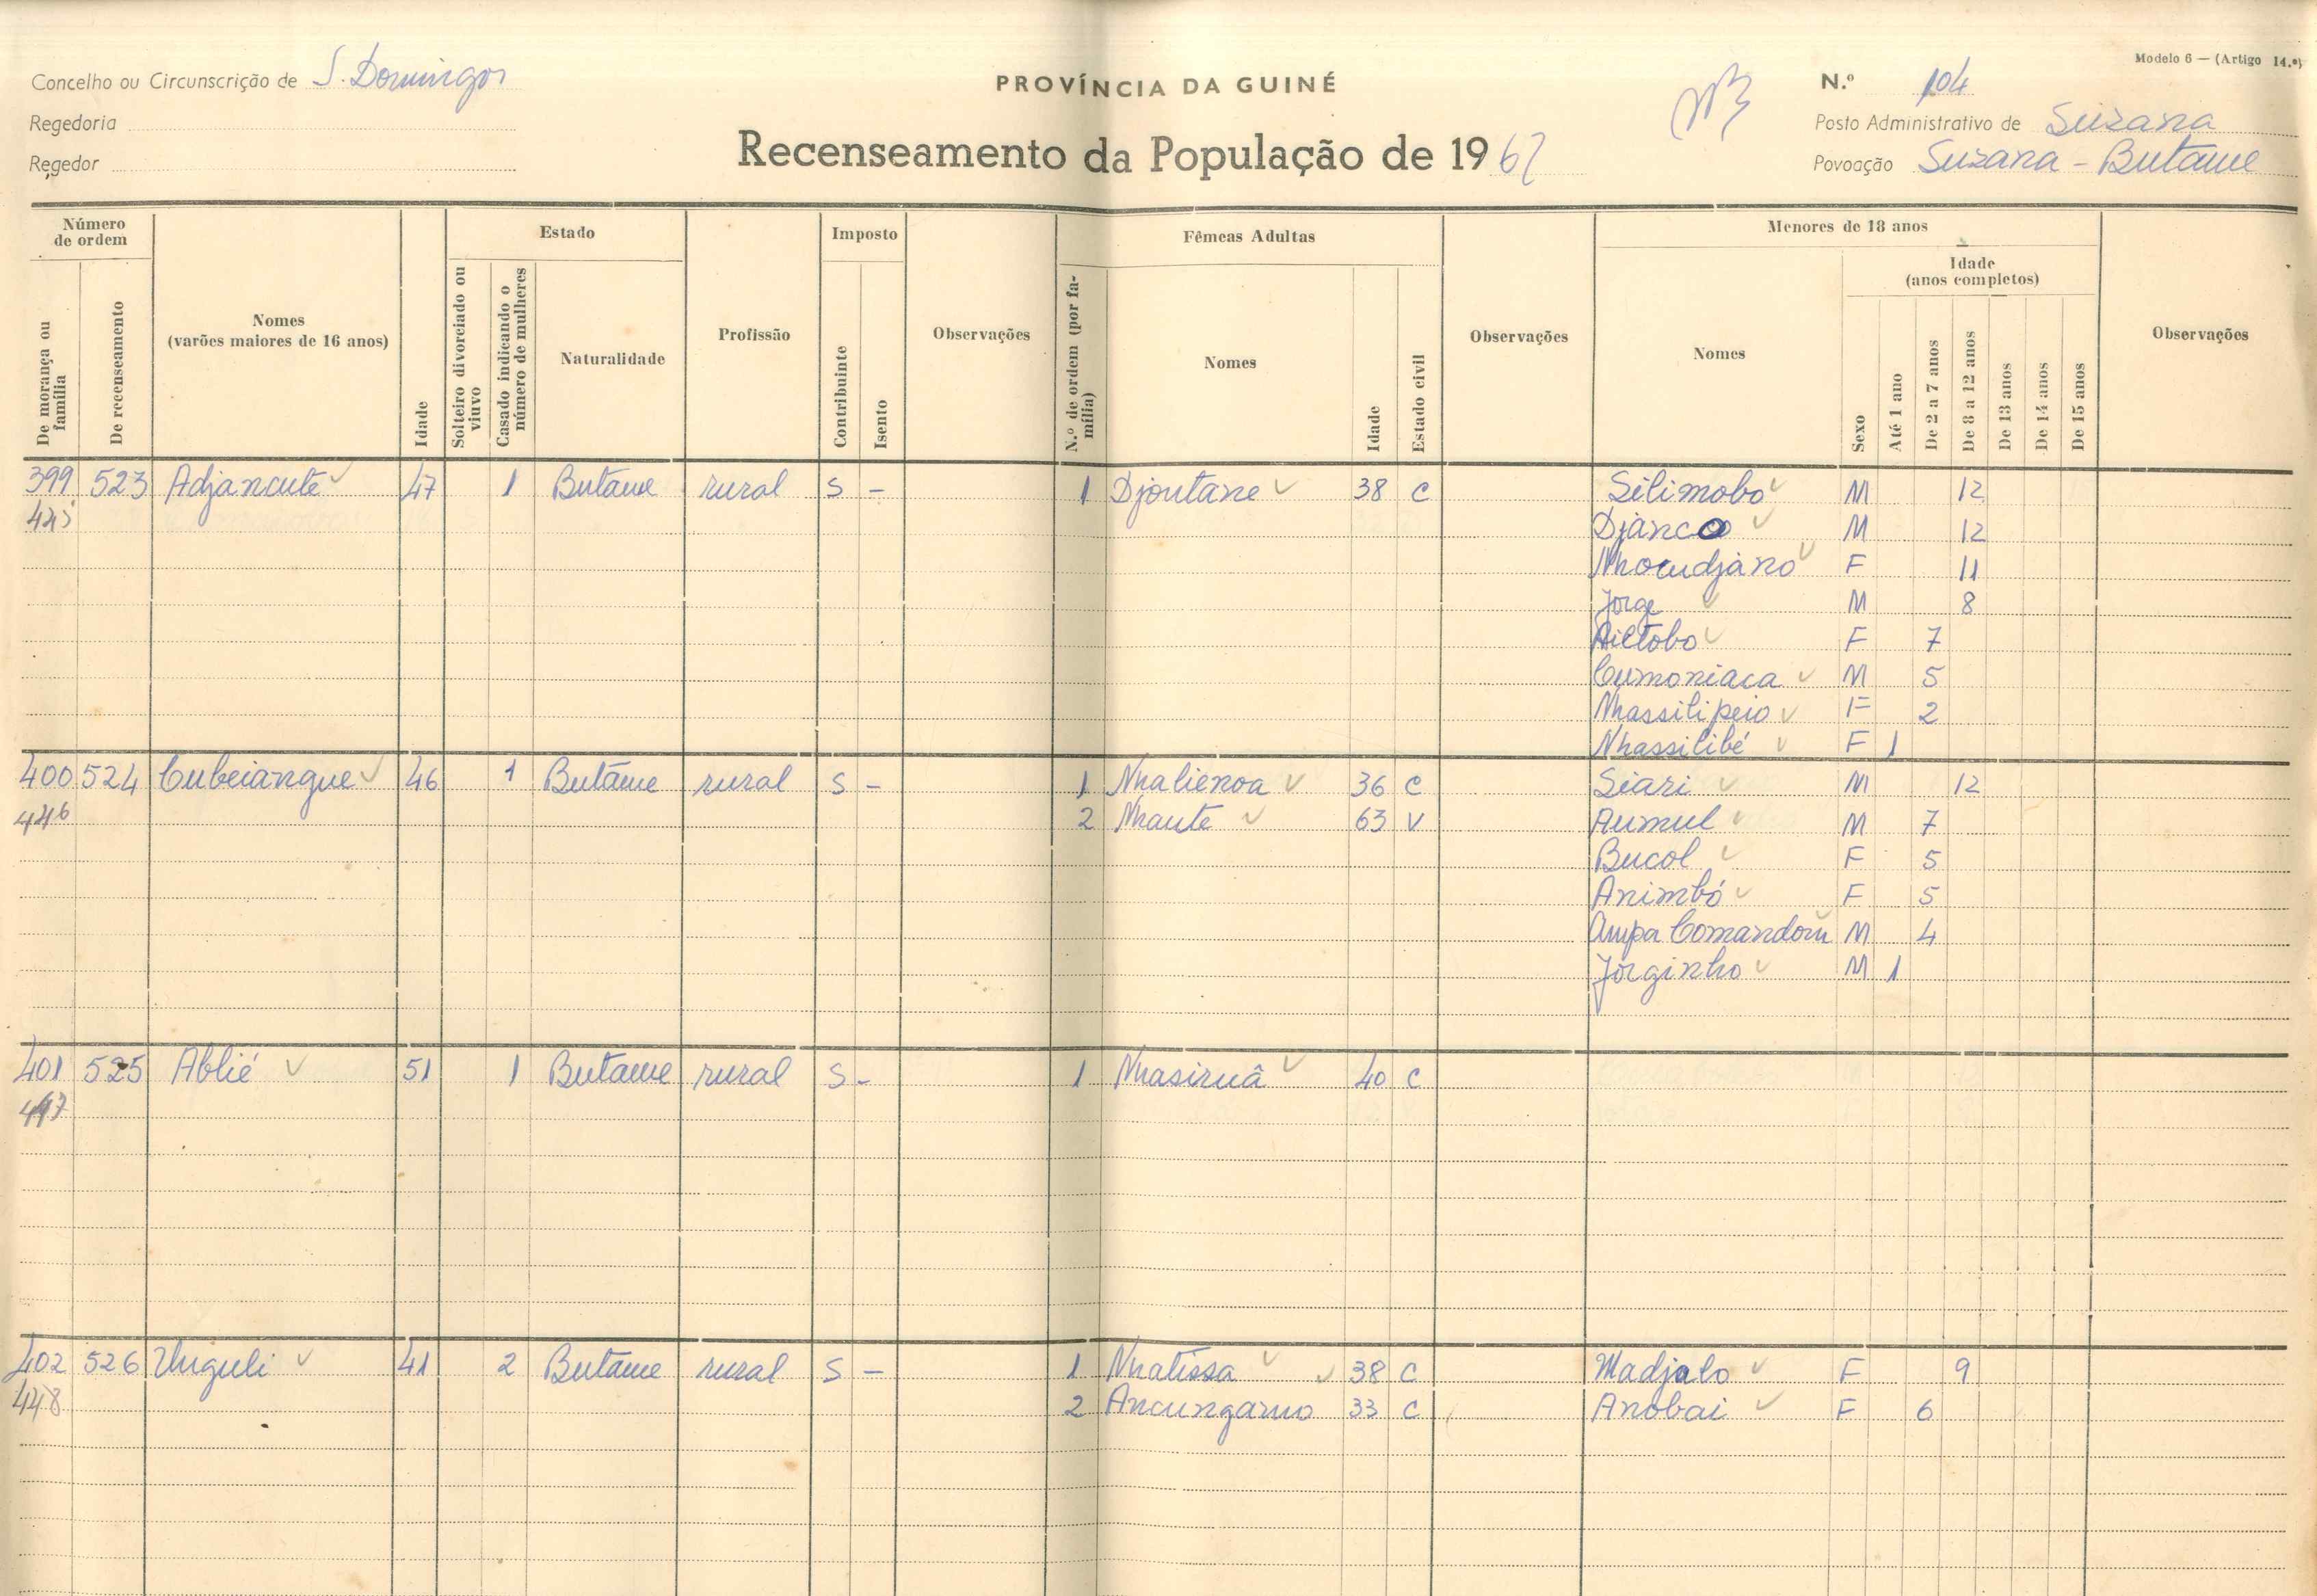 Modelo 6 — (Artigo 14.º)
Concelho ou Circunscrição de S. Domingos
PROVÍNCIA DA GUINÉ
N.º 104
Regedoria
Posto Administrativo de Suzana
Regedor
Recenseamento da População de 196
Povoação Suzana - Butame
Número de ordem
Estado
Imposto
Fêmeas Adultas
Menores de 18 anos
Idade (anos completos)
De morança ou família
De recenseamento
Nomes (varões maiores de 16 anos)
Idade
Solteiro divorciado ou viuvo
Casado indicando o número de mulheres
Naturalidade
Profissão
Contribuinte
Isento
Observações
N.º de ordem (por família)
Nomes
Idade
Estado civil
Observações
Nomes
Sexo
Até 1 ano
De 2 a 7 anos
De 8 a 12 anos
De 13 anos
De 14 anos
De 15 anos
Observações
399 523 Adjancute 47 1 Butame rural S - 1 Djoutane 38 C Silimobo M 12
445 Djanco M 12
Nhoudjano F 11
Jorge M 8
Aiétobo F 7
Cumoniaca M 5
Nhassilipeio F 2
Nhassilibé F 1
400 524 Cubeiangue 46 1 Butame rural S - 1 Nhalienoa 36 C Siari M 12
446 2 Nhaute 63 V Aumul M 7
Bucol F 5
Animbó F 5
Ampa Comandom M 4
Jorginho M 1
401 525 Ablié 51 1 Butame rural S - 1 Nhasiruâ 40 C
447
402 526 Unguli 41 2 Butame rural S - 1 Nhatissa 38 C Madjalo F 9
448 2 Ancungamo 33 C Anobai F 6